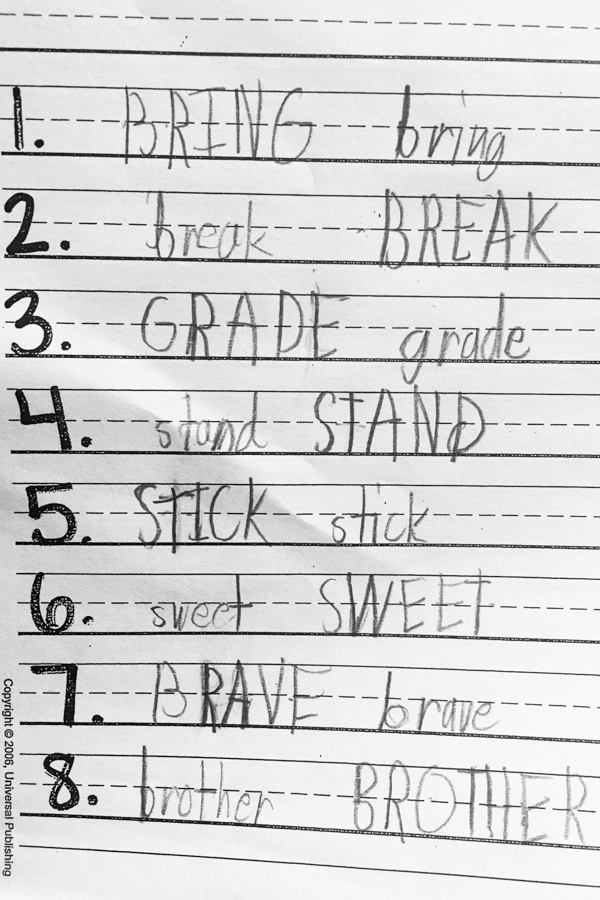 1. BRING bring
2. break BREAK
3. GRADE grade
4. stand STAND
5. STICK stick
6. sweet SWEET
7. BRAVE brave
8. brother BROTHER
Copyright © 2006, Universal Publishing